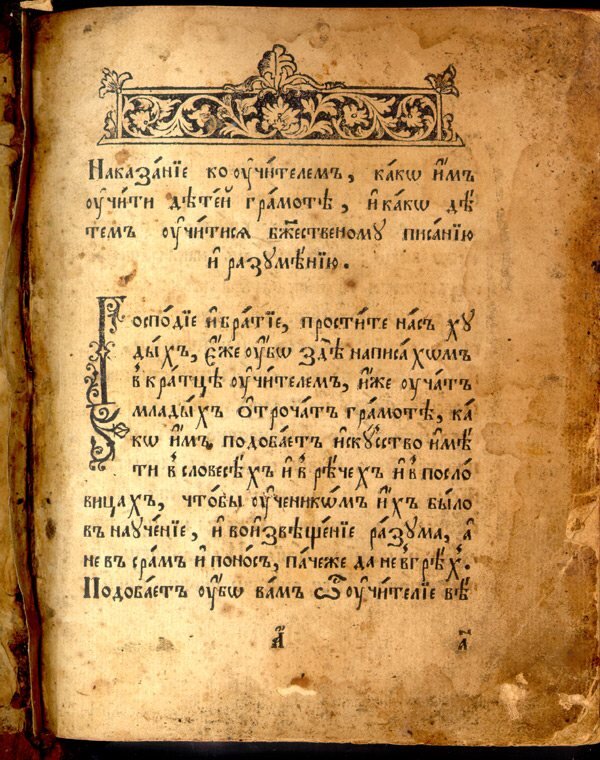 Наказа́нїе ко оучи́телемъ, ка́кѡ и҆̀мъ
оучи́ти дѣте́й гра́мотѣ, и҆ ка́кѡ дѣ́
темъ оучи́тисѧ бж҃е́ственому писа́нїю
и҆ разумѣ́нїю.
Господїе и҆ бра́тїе, прости́те на́съ ху
ды́хъ, є҆́же оу҆́бѡ здѣ̀ написа́хѡмъ
в кра́тцѣ оучи́телемъ, и҆́же оуча́тъ
млады́хъ ѻ҆троча́тъ гра́мотѣ, ка́
кѡ и҆̀мъ подоба́етъ и҆ску́ство и҆мѣ́
ти в словесѣ́хъ и҆ в рѣ́чехъ и҆ в посло́
вицахъ, что́бы оу҆ченикѡ́мъ и҆́хъ бы́ло
въ науче́нїе, и҆ во и҆звѣще́нїе ра́зума, а҆
не въ сра́мъ и҆ поно́съ, па́чеже да не в грѣ́хъ.
Подоба́етъ оу҆́бѡ ва́мъ ѽ оучи́телїе вѣ́
а҃
а҃